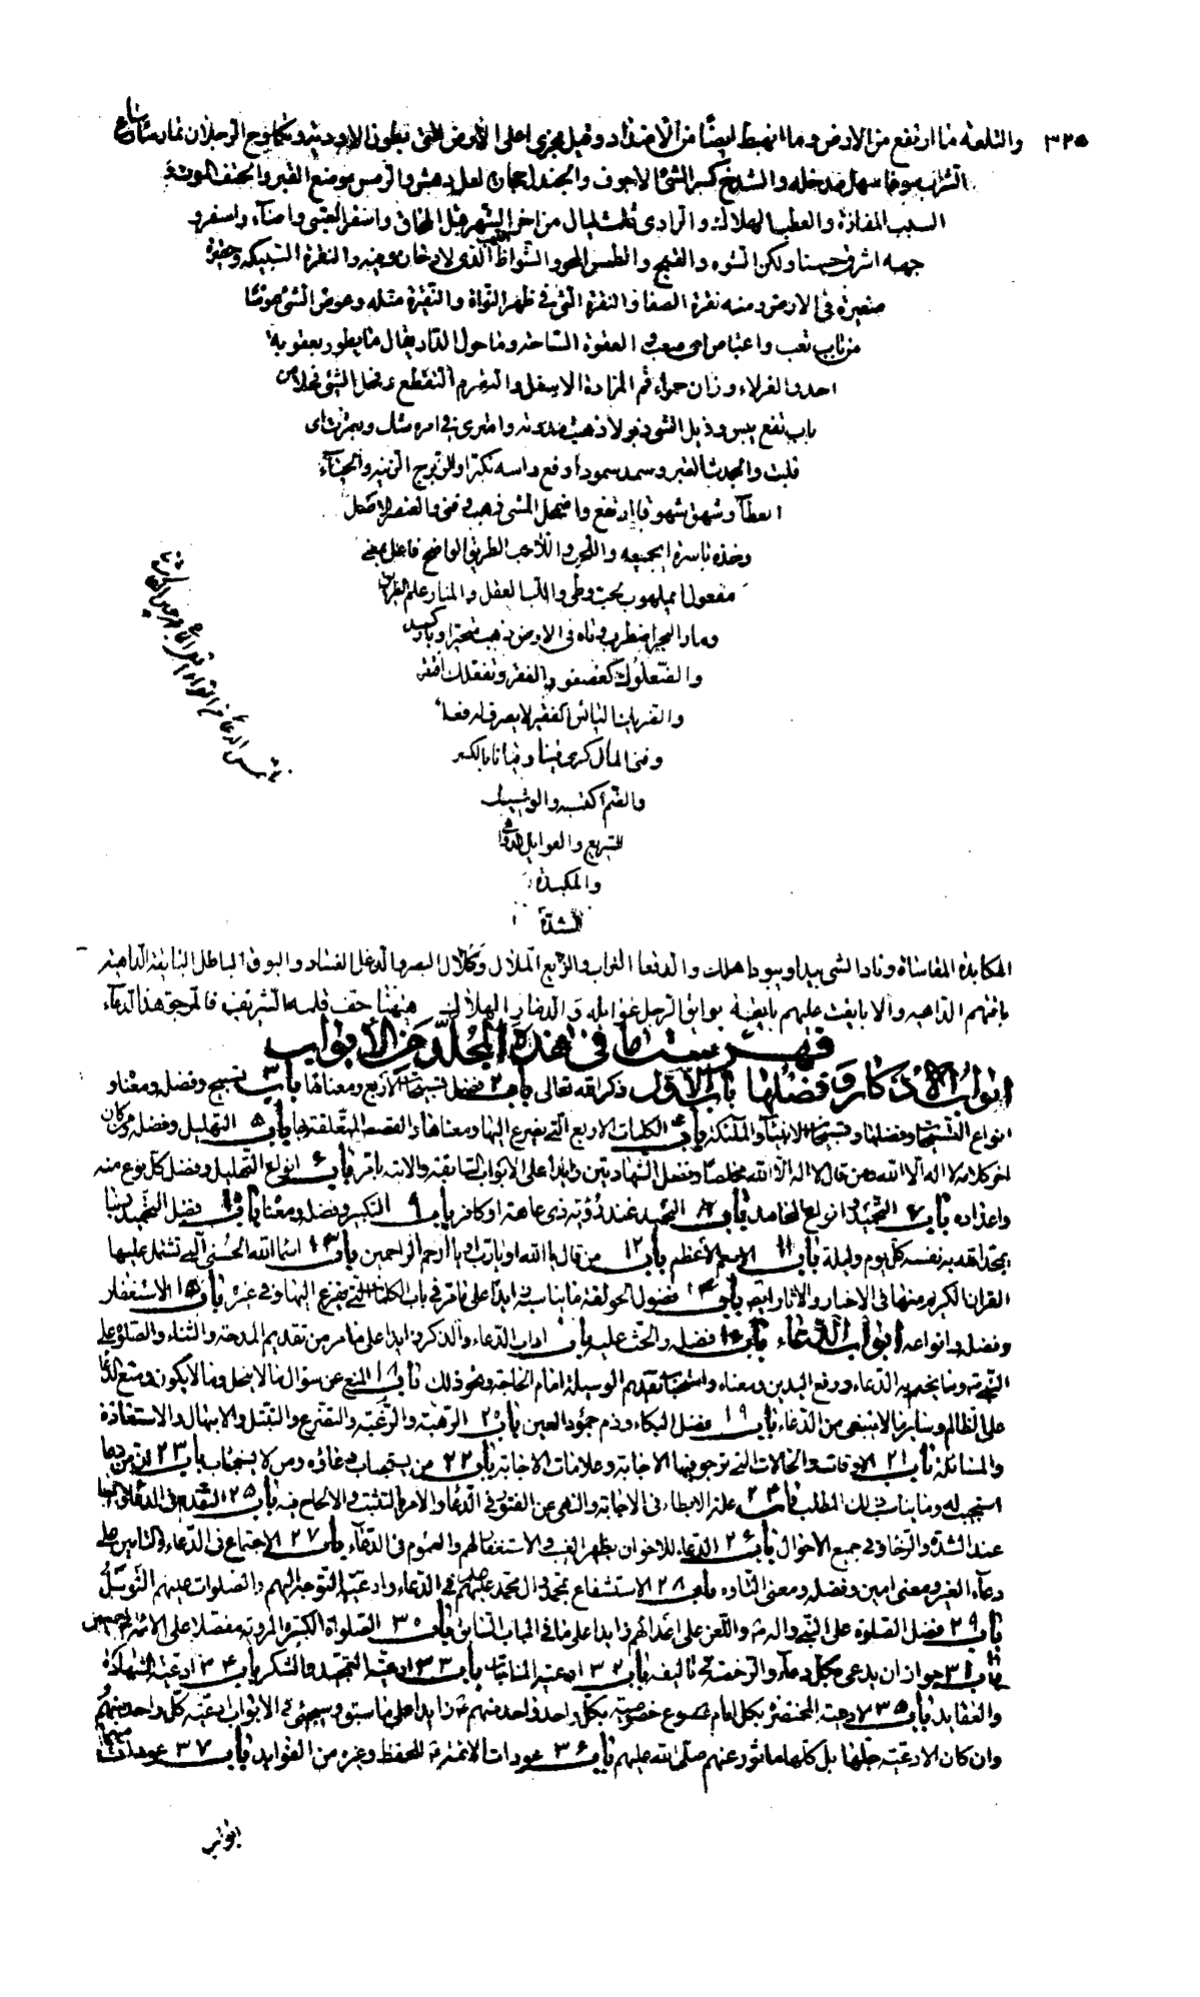 ٣٢٥ والتلعة ما ارتفع من الارض وما انهبط ايضًا من الاضداد وقيل مجرى اعلى الارض الى بطون الاودية وتكاوح الرجلان تمارسا وساغ
الشراب سوغا سهل مدخله والشدخ كسر الشئ الاجوف والرمس موضع القبر والحتف الموت و
السبب المفازة والعطب الهلاك والدادى ثلث ليال من اخر الشهر قبل المحاق واسفر الصبح واضاء واسفر و
جهه اشرق حسنا ولكن التشوه والقبح والطمس المحو والشواظ اللهب الذى لا دخان فيه والنقرة السبيكة وحفيرة
صغيرة فى الارض ومنه نقرة القفا والنقرة التى فى ظهر النواة والنقيرة مثله وعوص الشئ عوصًا
من باب تعب واعتاص اى صعب والعقوة الساحة وما حول الدار يقال ما يطور بعقوته
احد والعزلاء وزان حمراء فم المزادة الاسفل والتصرم التقطع ونحل الشئ نحلا من
باب نفع يبس وذبل الشئ ذبولا ذهبت ندوته وامترى فى امره شك
قلبت والجدث القبر وسمد سمودا رفع راسه تكبرا والزبرج الزينة والحباء
العطاء وشهق شهوقا ارتفع واضمحل الشئ ذهب وفنى والعنصر الاصل
وخذه باسره اى جميعه واللحب واللاحب الطريق الواضح فاعل بمعنى
مفعول اى ملحوب لحب وطى واللب العقل والمنار علم الطريق
ومار البحر اضطرب وتاه فى الارض ذهب متحيرا
والصعلوك كعصفور الفقير وتصعلك افتقر
وفنى المال كرضى فينا وفيانا بالكسر
السريع والغوايل الدواهى
والمكيدة
الشدة
المكابدة المقاساة وباد الشئ يبيد او يبود اهلك والدقعا التراب والملال وكلال البصر والدغل الفساد والبوق الباطل البائقة الداهية
باقتهم الداهية بوائق الرجل غوايله والدمار الهلاك هيهنا جف قلمه الشريف فالمرجو هذا الدعاء
فهرست ما فى هذه المجلد من الأبواب
ابواب الاذكار وفضلها باب الأول ذكر الله تعالى باب ٢ فضل تسبيحات الاربع ومعناها باب ٣ تسبيح وفضله ومعناه و
انواع التسبيحات وفضلها وتسبيحات الانبياء والملئكة باب ٤ الكلمات الاربع التى يفزع اليها ومعناها والقصص المتعلقة بها باب ٥ التهليل وفضله ومن كان
اخر كلامه لا اله الا الله ومن قال لا اله الا الله مخلصا وفضل الشهادتين زايدا على الابواب السابقة والاتية باب ٦ انواع التهليل وفضل كل نوع منه
واعداده باب ٧ التحميد وانواع المحامد باب ٨ التحميد عند رؤية ذى عاهة او كافر باب ٩ التكبير وفضله ومعناه باب ١٠ فضل التمجيد وما
يمجد الله به نفسه كل يوم وليلة باب ١١ الاسم الأعظم باب ١٢ من قال يا الله او يا رب او يا ارحم الراحمين باب ١٣ اسماء الله الحسنى التى تشتمل عليها
القران الكريم ومنها فى الاخبار والاثار باب ١٤ فضل الحولقة وما يناسبه زايدًا على ما مر فى باب الكلمات التى يفزع اليها وفى غيره باب ١٥ الاستغفار
وفضله وانواعه ابواب الدعاء باب ١٦ فضله والحث عليه باب ١٧ اداب الدعاء والذكر زايدا على ما مر من تقديم المدحة والثناء والصلوة على
النبى وما يختم به الدعاء ورفع اليدين ومعناه واستحباب تقديم الوسيلة امام الحاجة ونحو ذلك باب ١٨ المنع عن سؤال ما لا يحل وما لا يكون ومنع الدعاء
على الظالم وساير ما لا ينبغى من الدعاء باب ١٩ فضل البكاء وذم جمود العين باب ٢٠ الرهبة والرغبة والتضرع والتبتل والابتهال والاستعاذة
والمسائلة باب ٢١ الاوقات والحالات التى ترجى فيها الاجابة وعلامات الاجابة باب ٢٢ من يستجاب دعاؤه ومن لا يستجاب باب ٢٣ ان من دعا
استجيب له وما يناسب ذلك المطلب باب ٢٤ علة الابطاء فى الاجابة والنهى عن الفتور فى الدعاء والامر بالتثبت والالحاح فيه باب ٢٥ التقدم فى الدعاء
عند الشدة والرخاء وفى جميع الاحوال باب ٢٦ الدعاء للاخوان بظهر الغيب والاستغفار لهم والعموم فى الدعاء باب ٢٧ الاجتماع فى الدعاء والتامين على
دعاء الغير ومعنى امين وفضله ومعنى التاوه باب ٢٨ الاستشفاع بمحمد وال محمد فى الدعاء وادعية التوجه اليهم والصلوات عليهم والتوسل
باب ٢٩ فضل الصلوة على النبى واله واللعن على اعدائهم زايدا على ما فى الباب السابق باب ٣٠ الصلوات الكبيرة المروية مفصلا على الائمة اجمعين
باب ٣١ جواز ان يدعى بكل دعاء والرخصة فى تاليفه باب ٣٢ ادعية المناجات باب ٣٣ ادعية التمجيد والشكر باب ٣٤ ادعية الشهادة
والعقايد باب ٣٥ الادعية المختصة بكل امام بكل واحد واحد منهم زايدا على ما سبق وسيجئ فى الابواب ادعية كل واحد منهم
وان كان الادعية جلها بل كلها ماثور عنهم صلى الله عليهم باب ٣٦ عوذات الائمة للحفظ وغيره من الفوايد باب ٣٧ عوذات
ابواب